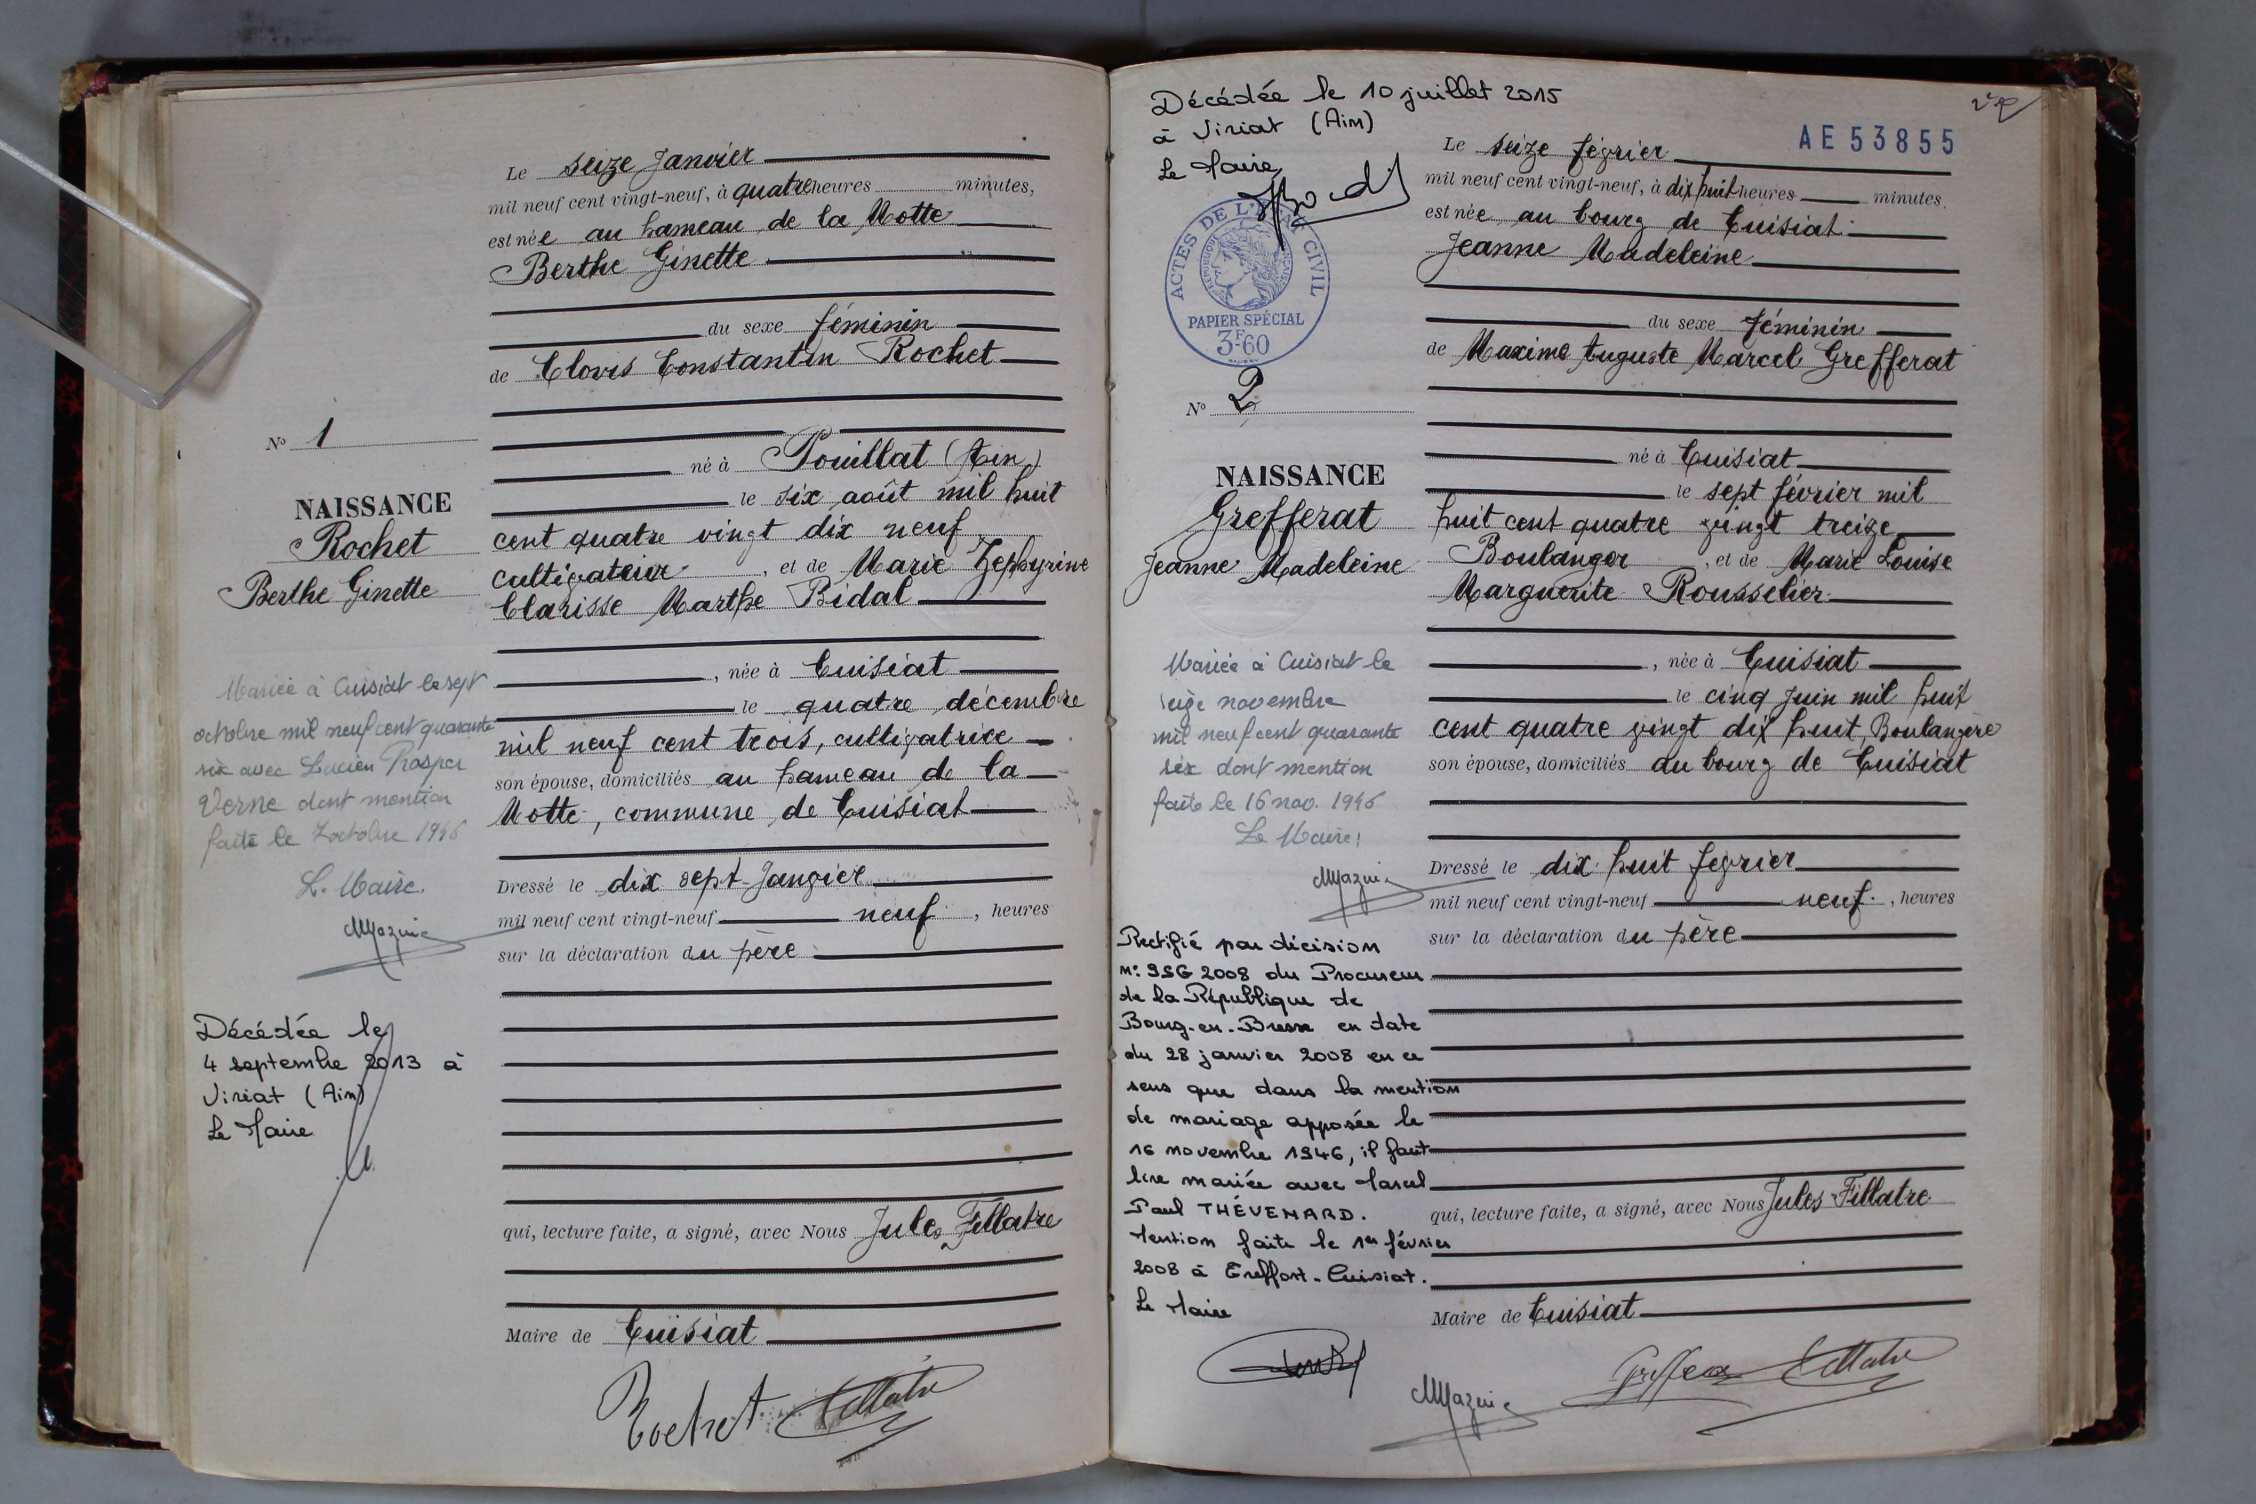 Le seize Janvier
mil neuf cent vingt-neuf, à quatre heures minutes,
est née au hameau de la Motte
Berthe Ginette
du sexe féminin
de Clovis Constantin Rochet
né à Pouillat (Ain)
le six août mil huit
cent quatre vingt dix neuf
cultivateur, et de Marie Zephyrine
Clarisse Marthe Bidal
, née à Cuisiat
le quatre décembre
mil neuf cent trois, cultivatrice
son épouse, domiciliés au hameau de la
Motte, commune de Cuisiat
Dressé le dix sept Janvier
mil neuf cent vingt-neuf neuf, heures
sur la déclaration du père
qui, lecture faite, a signé, avec Nous Jules Fillatre
Maire de Cuisiat
Rochet
Nº 1
NAISSANCE
Rochet
Berthe Ginette
Mariée à Cuisiat le sept
octobre mil neuf cent quarante
six avec Lucien Prosper
Verne dont mention
faite le 7 octobre 1946
L. Maire.
Décédée le
4 septembre 2013 à
Viriat (Ain)
Le Maire
Décédée le 10 juillet 2015
à Viriat (Ain)
Le Maire
ACTES DE L'ÉTAT CIVIL
PAPIER SPÉCIAL
3F60
Nº 2
NAISSANCE
Grefferat
Jeanne Madeleine
Mariée à Cuisiat le
seize novembre
mil neuf cent quarante
six dont mention
faite le 16 nov. 1946
Le Maire,
Rectifié par décision
n° 996 2008 du Procureur
de la République de
Bourg-en-Bresse en date
du 28 janvier 2008 en ce
sens que dans la mention
de mariage apposée le
16 novembre 1946, il faut
lire mariée avec Marcel
Paul THÉVENARD.
Mention faite le 1er février
2008 à Treffort-Cuisiat.
Le Maire
AE 53855
Le seize février
mil neuf cent vingt-neuf, à dix huit heures minutes.
est née au bourg de Cuisiat
Jeanne Madeleine
du sexe féminin
de Maxime Auguste Marcel Grefferat
né à Cuisiat
le sept février mil
huit cent quatre vingt treize
Boulanger, et de Marie Louise
Marguerite Rousselier
, née à Cuisiat
le cinq Juin mil huit
cent quatre vingt dix huit, Boulangère
son épouse, domiciliés au bourg de Cuisiat
Dressé le dix huit fevrier
mil neuf cent vingt-neuf neuf, heures
sur la déclaration du père
qui, lecture faite, a signé, avec Nous Jules Fillatre
Maire de Cuisiat